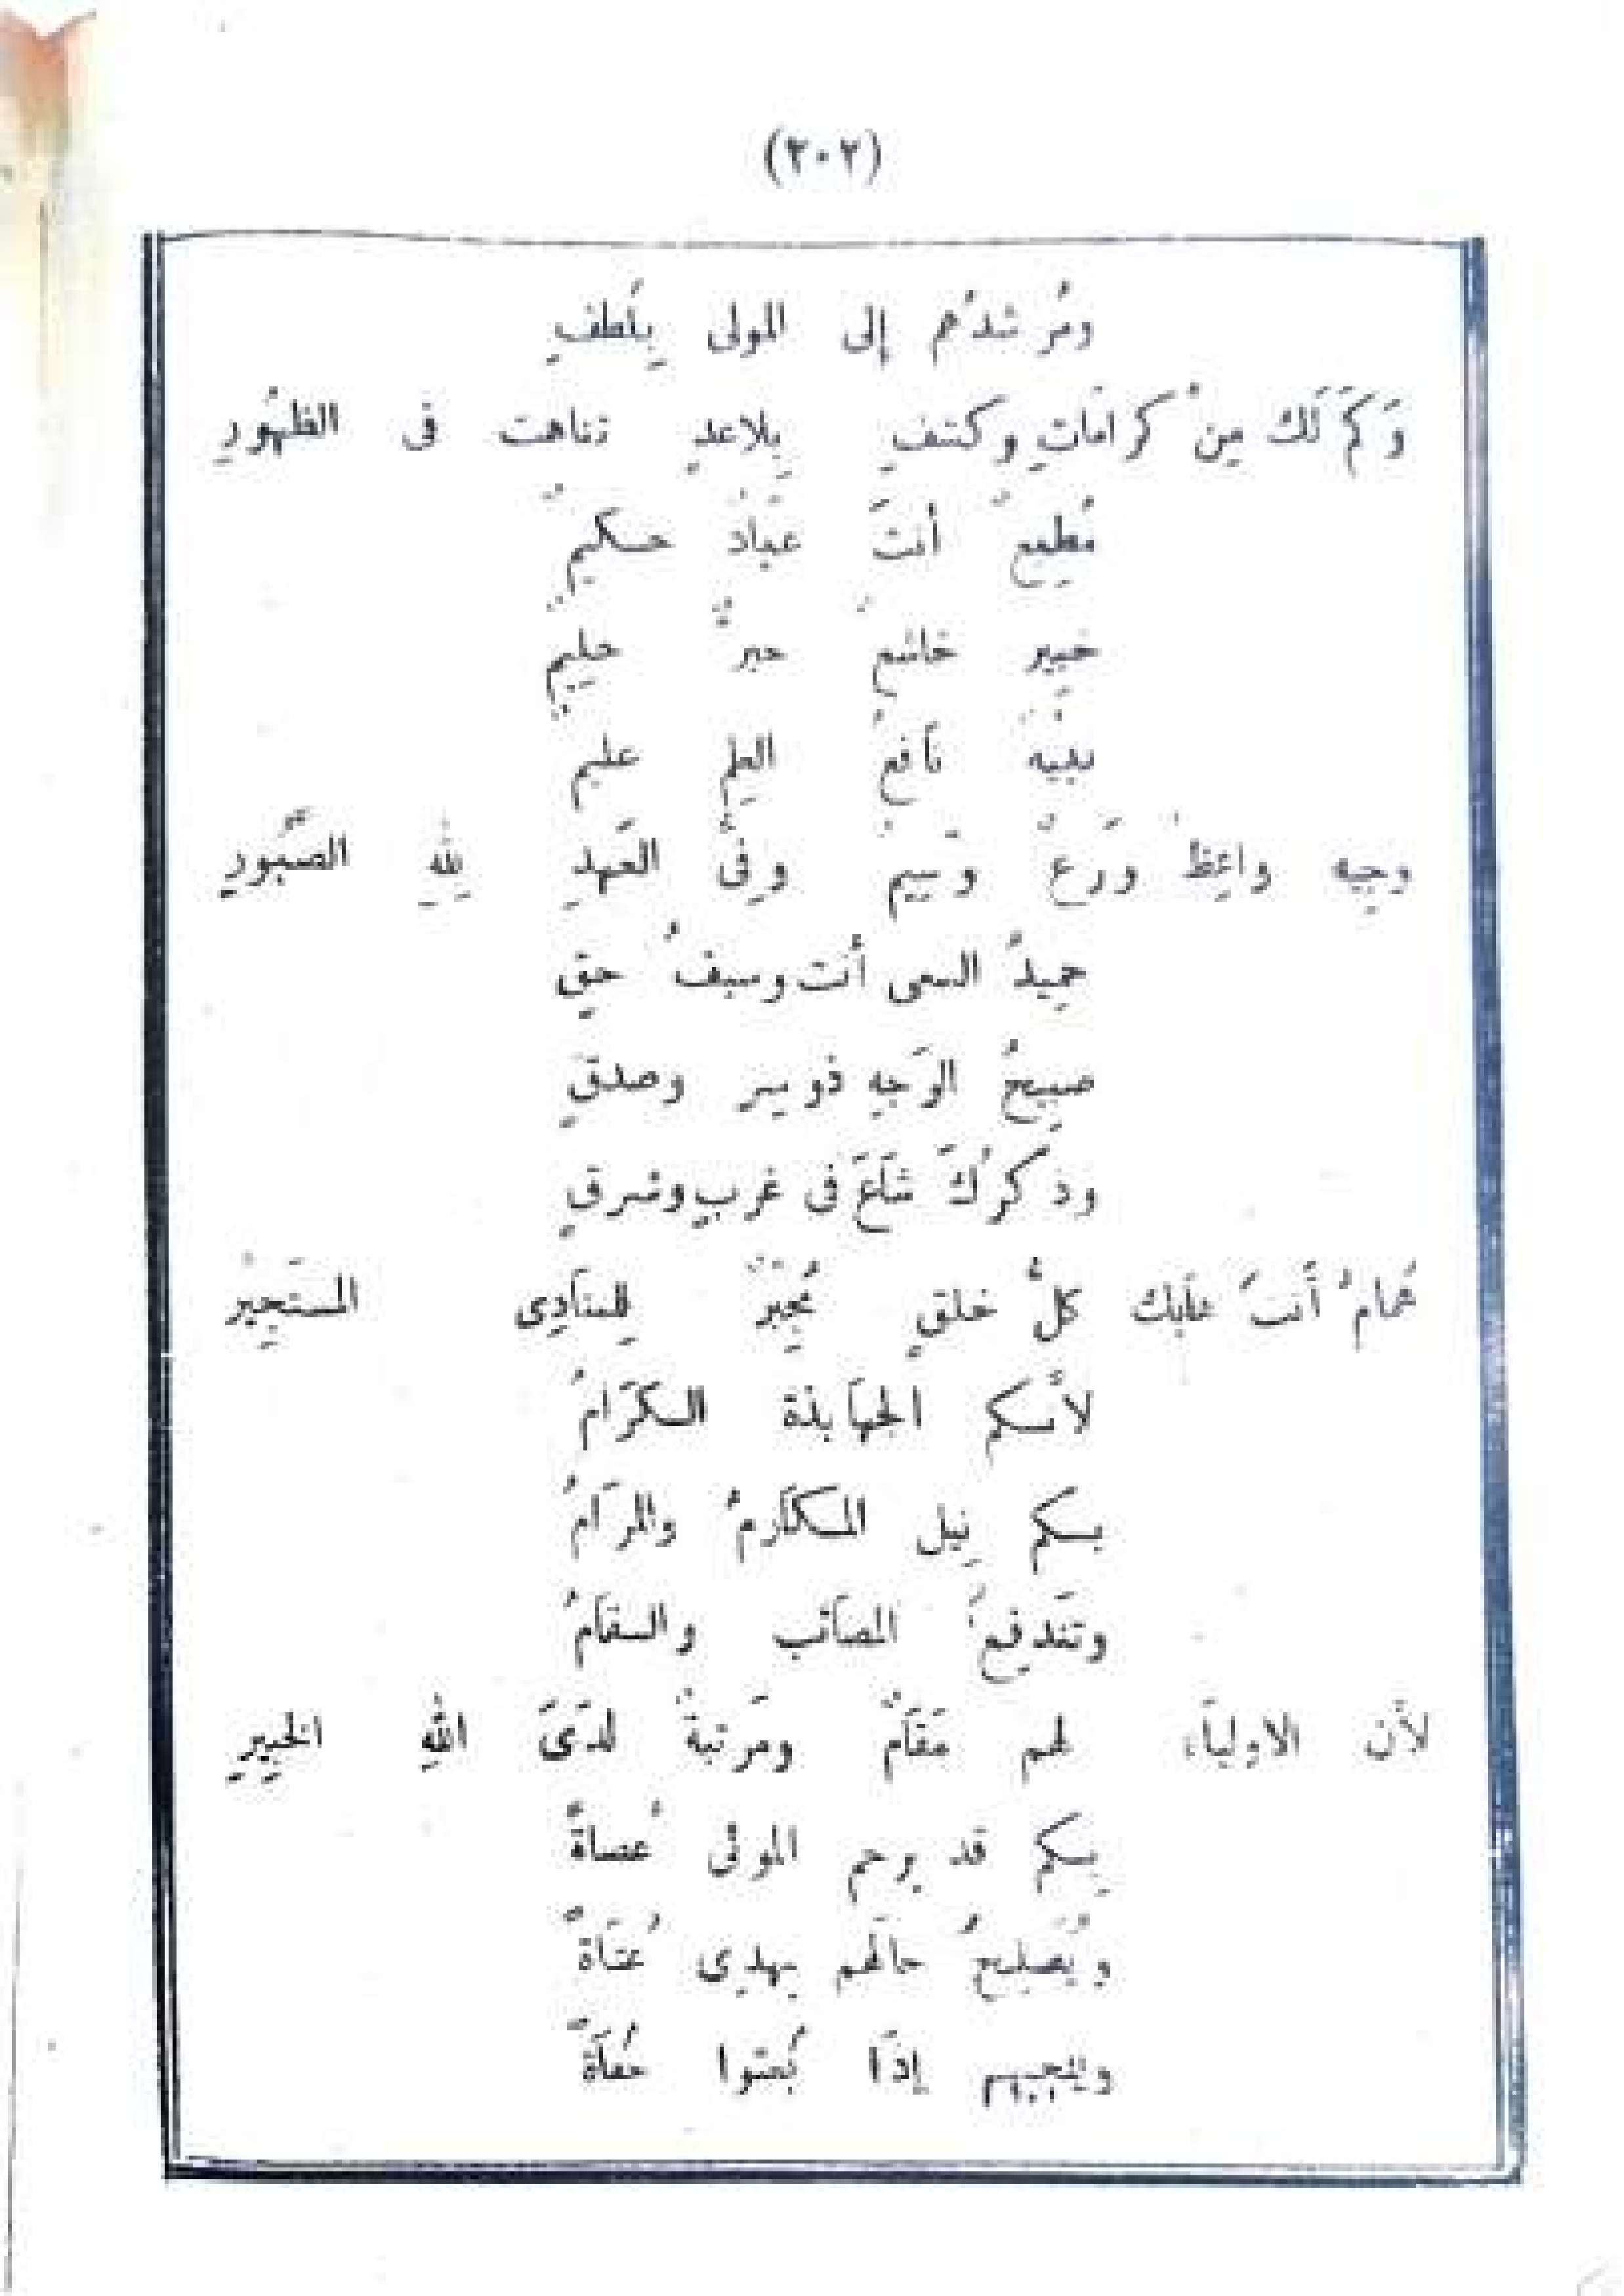 (٢٠٢)
ومُرشدُهم إلى المولى بِلَطفِ
وَكَمْ لَك مِنْ كرامَاتٍ وكشفٍ بِلاعدٍ تناهت فى الظهُورِ
مُطِيعٌ أنتَ عَبادٌ حكيمٌ
خَبِير خاشعٌ حبرٌ حليمٌ
نبيْهٌ نَافعُ العِلِم عليم
وجِيه واعِظٌ وَرَعٌ وَسِيمٌ وفىُّ العَهدِ لِلهِ الصَّبُورِ
حميِدُ السعى أنت وسيفُ حقٍ
صبِيحُ الوَجهِ ذو سِر وصدقٍ
وذكرُكَ شَاعَ فى غربٍ وشرقٍ
هُمامٌ أَنتَ عَلَيك كلُّ خلقٍ مُجِيرٌ لِلمنَادِى المستَجِيْرِ
لأنكم الجهَابذة الكرَامُ
بكم نِيل المكَارمُ والمرَامُ
وتَندفِعُ المصَائب والسقَامُ
لأن الاولِيَاء لهم مَقَامٌ ومَرتبةٌ لدَىَ اللهِ الخبِيرِ
بِكم قد يرحم المولى عُصاةً
ويُصلِحُ حالَهم يهدِى عُتَاةً
وينجيهم إذَا بُعثوا حُفَاةً